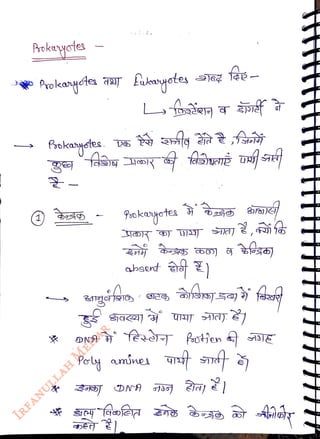 Prokaryotes –
Prokaryotes तथा Eukaryotes शब्द दिए –
↳ क्रिस्टेंशन व डॉगर्टी ने
→ Prokaryotes एक ऐसे सजीव होते है, जिनमें
कुछ विशेष प्रकार की विशेषताएं पायी जाती
है –
① केन्द्रक – Prokaryotes में केन्द्रक
प्रकार का पाया जाता है, क्योंकि
इनमें केन्द्रक कला व केन्द्रिका
absent होती है।
→ आनुवंशिक घटक कोशिका द्रव्य में बिखरी
हुई अवस्था में पाया जाता है।
* DNA में हिस्टोन Protien की जगह
Poly amines पायी जाती है।
* इनका DNA नग्न होता है।
* अल्प विकसित इनके केन्द्रक को
कहते है।
IRFANULLAH